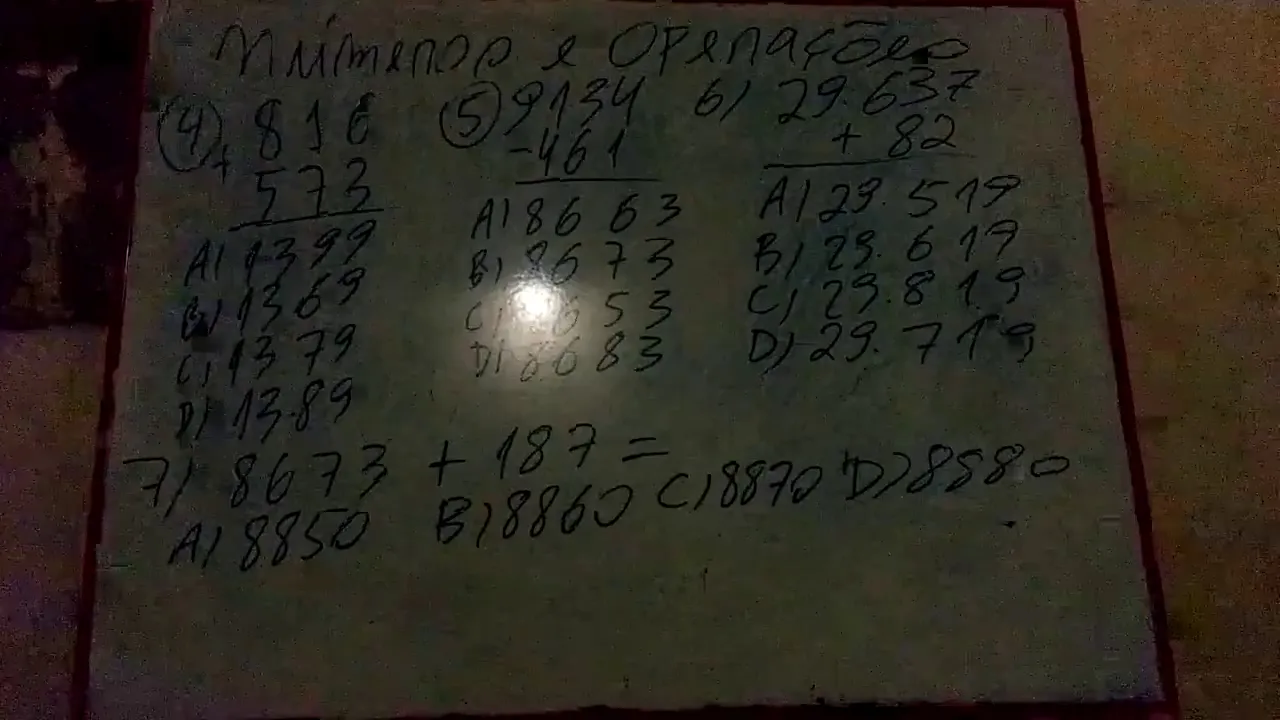 Números e Operações
4) 816
+ 573
A) 1399
B) 1369
C) 1379
D) 1389
5) 9134
-461
A) 8663
B) 8673
C) 8653
D) 8683
6) 29.637
+ 82
A) 29.519
B) 29.619
C) 29.819
D) 29.719
7) 8673 + 187 =
A) 8850 B) 8860 C) 8870 D) 8880